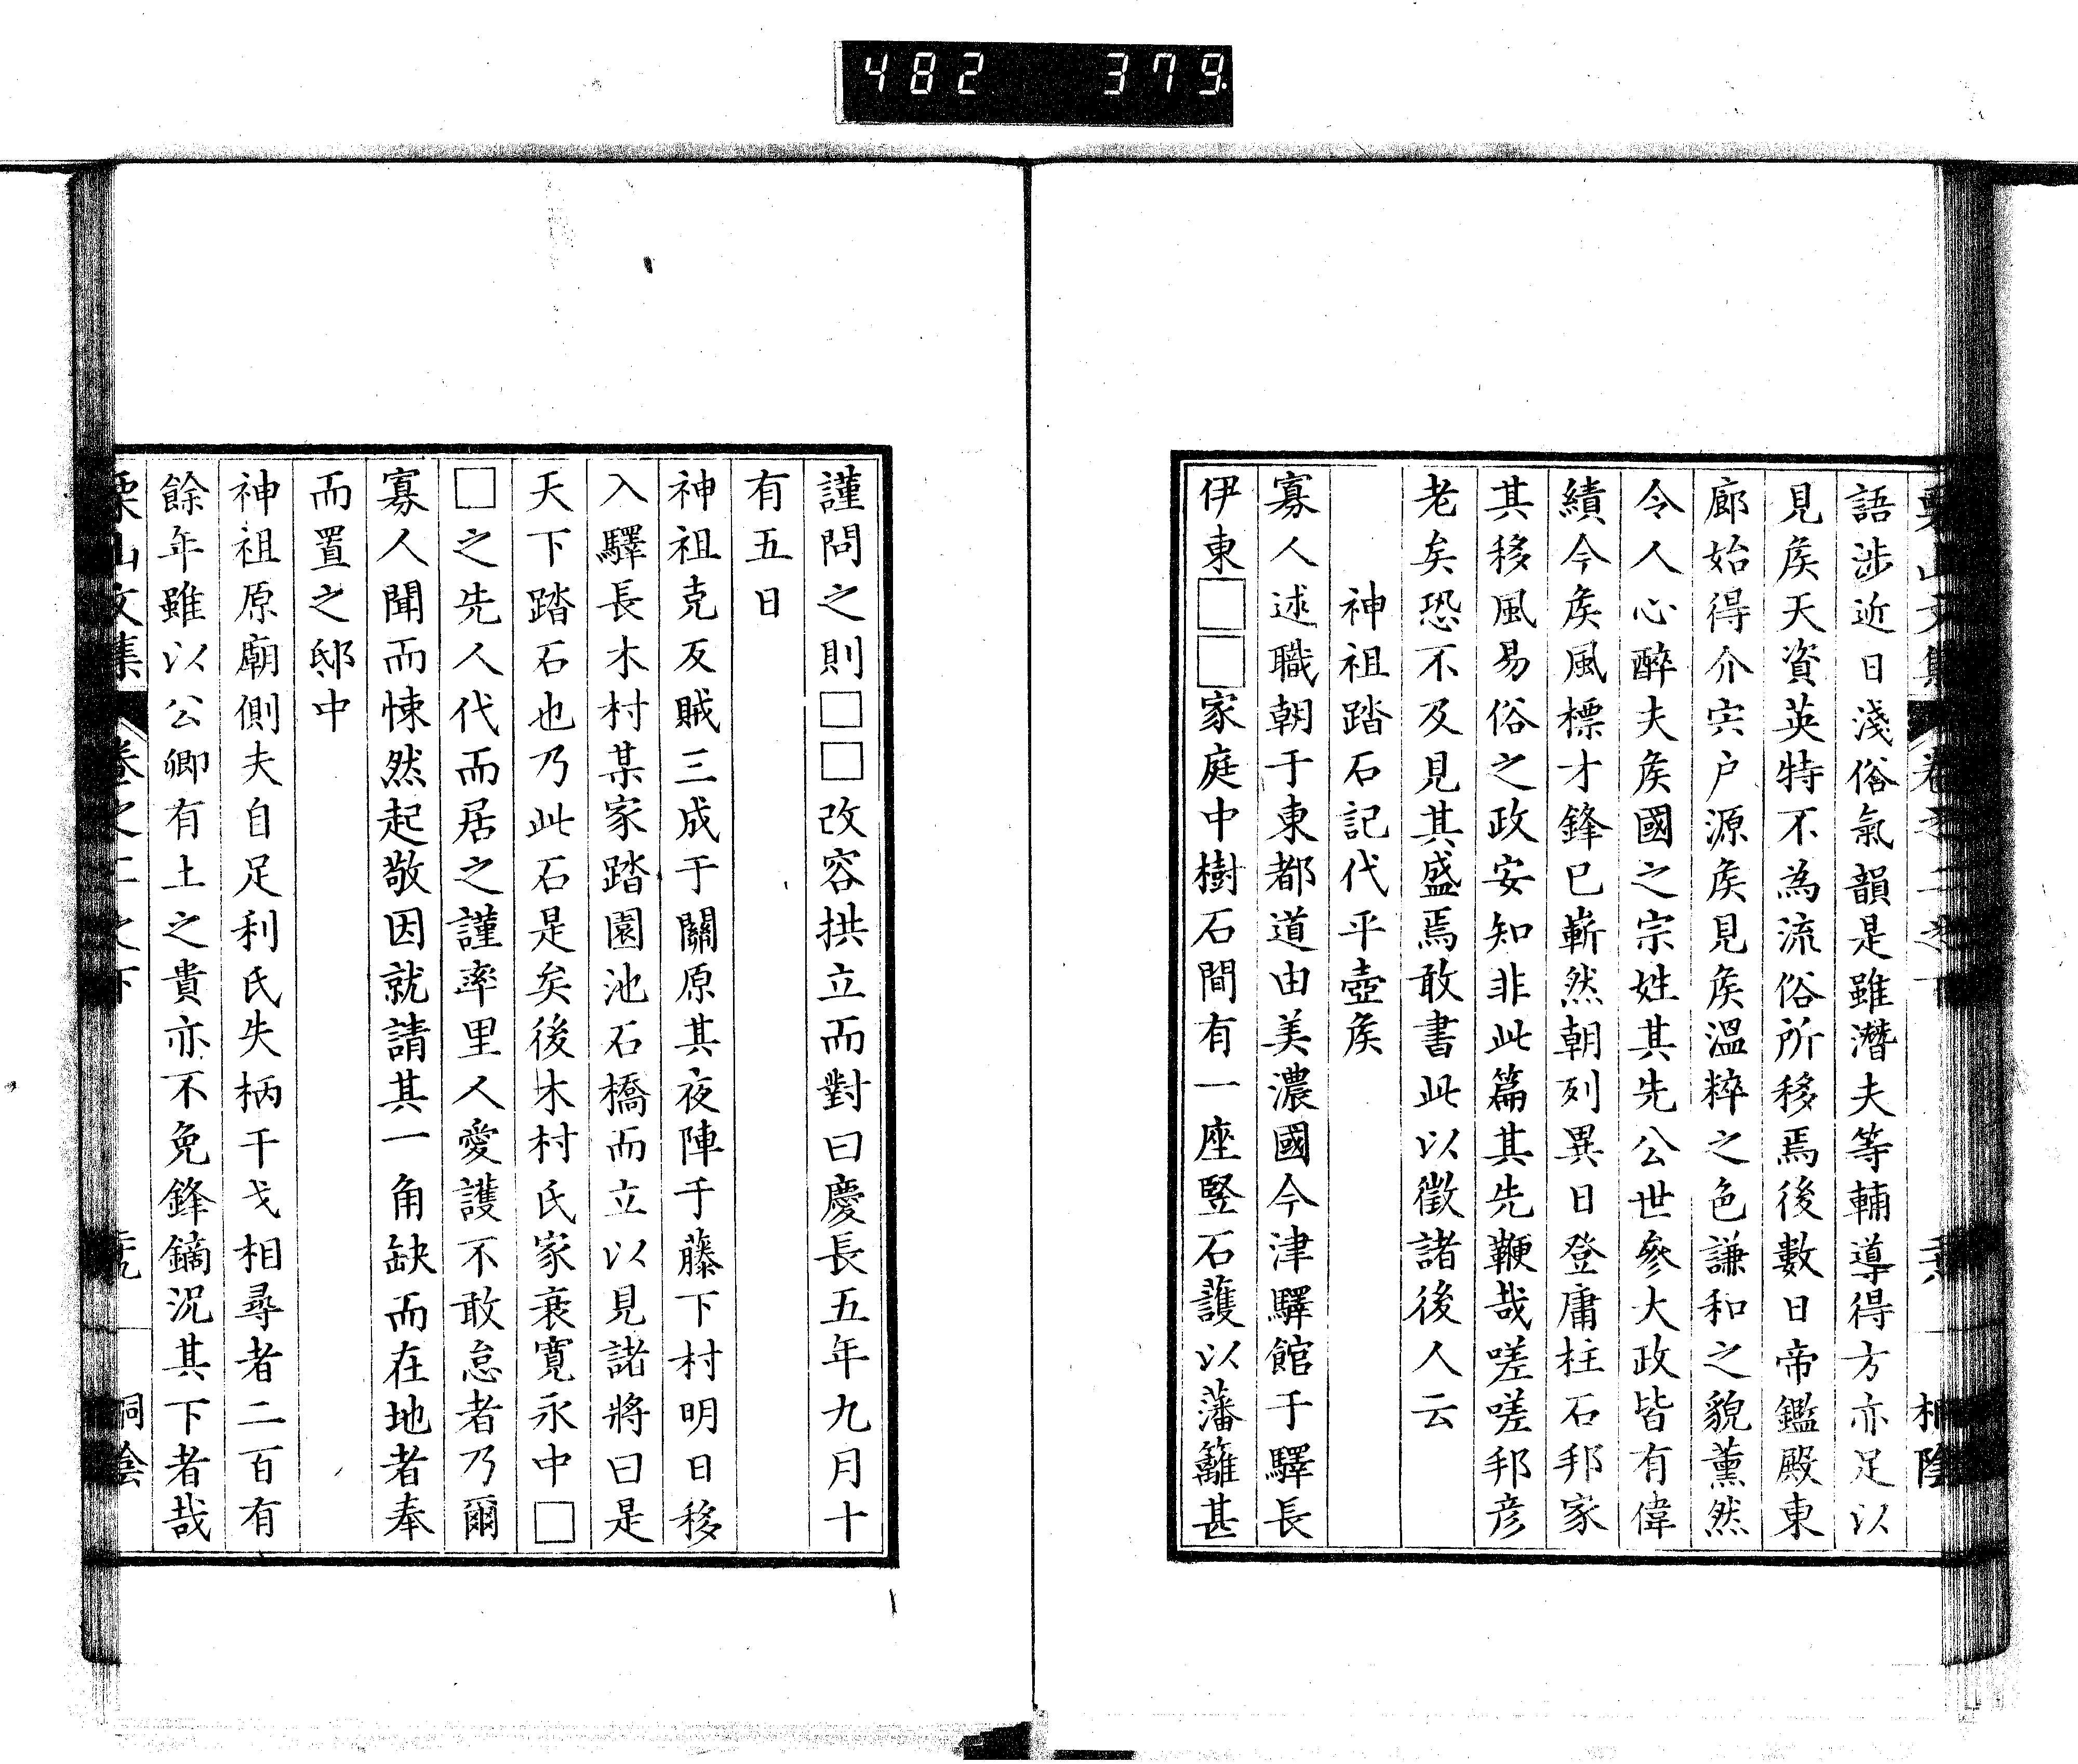 482 379
語涉近日淺俗氣韻是雖潛夫等輔導得方亦足以
見矦天資英特不為流俗所移焉後數日帝鑑殿東
廊始得介宍户源矦見矦溫粹之色謙和之貌薰然
令人心醉夫矦國之宗姓其先公世參大政皆有偉
績今矦風標才鋒已嶄然朝列異日登庸柱石邦家
其移風易俗之政安知非此篇其先鞭哉嗟嗟邦彦
老矣恐不及見其盛焉敢書此以徵諸後人云
神祖踏石記代平壺矦
寡人述職朝于東都道由美濃國今津驛館于驛長
伊東□□家庭中樹石間有一座竪石護以藩籬甚
謹問之則□□改容拱立而對曰慶長五年九月十
有五日
神祖克反賊三成于關原其夜陣于藤下村明日移
入驛長木村某家踏園池石橋而立以見諸將曰是
天下踏石也乃此石是矣後木村氏家衰寛永中□
□之先人代而居之謹率里人愛護不敢怠者乃爾
寡人聞而悚然起敬因就請其一角缺而在地者奉
而置之邸中
神祖原廟側夫自足利氏失柄干戈相尋者二百有
餘年雖以公卿有土之貴亦不免鋒鏑況其下者哉
栗山文集 卷之二之下